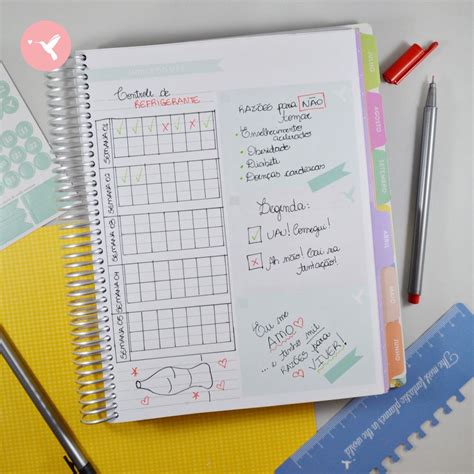 Controle de
REFRIGERANTE
SEMANA 01
SEMANA 02
SEMANA 03
SEMANA 04
SEMANA 05
RAZÕES para NÃO
tomar
• Envelhecimento
acelerado
• Obesidade
• Diabete
• Doenças cardíacas
Legenda:
✓ UAU! Consegui!
✗ Ah não! Caí na
tentação!
Eu me
AMO
e tenho mil
RAZÕES para
VIVER!
JULHO
AGOSTO
SETEMBRO
ABRIL
MAIO
JUNHO
The most fantastic planner in the
world